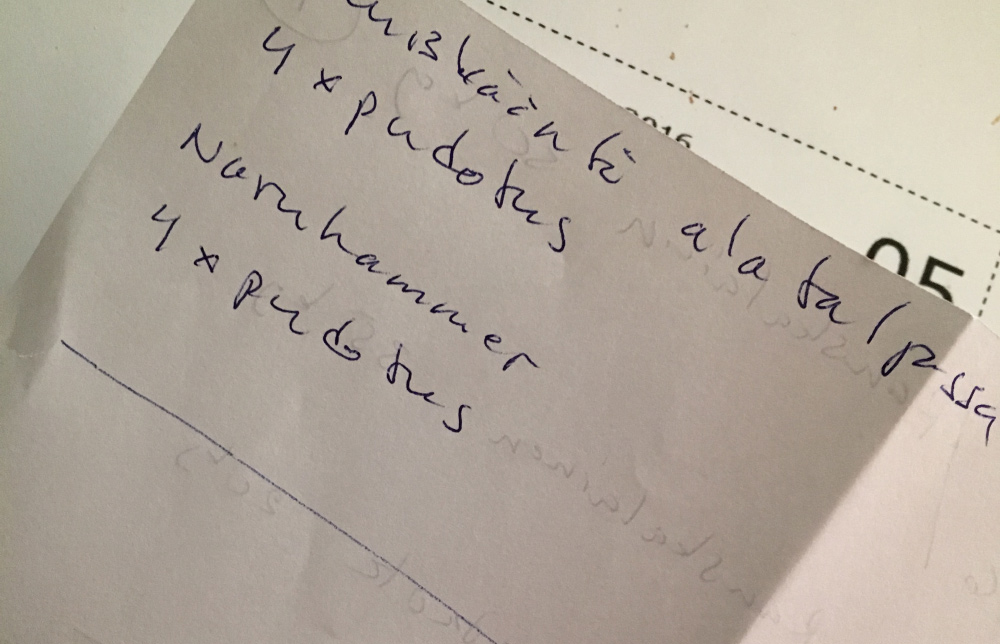 alatalpassa
4 x pudotus
Naruhammer
4 x pudotus
2016
05